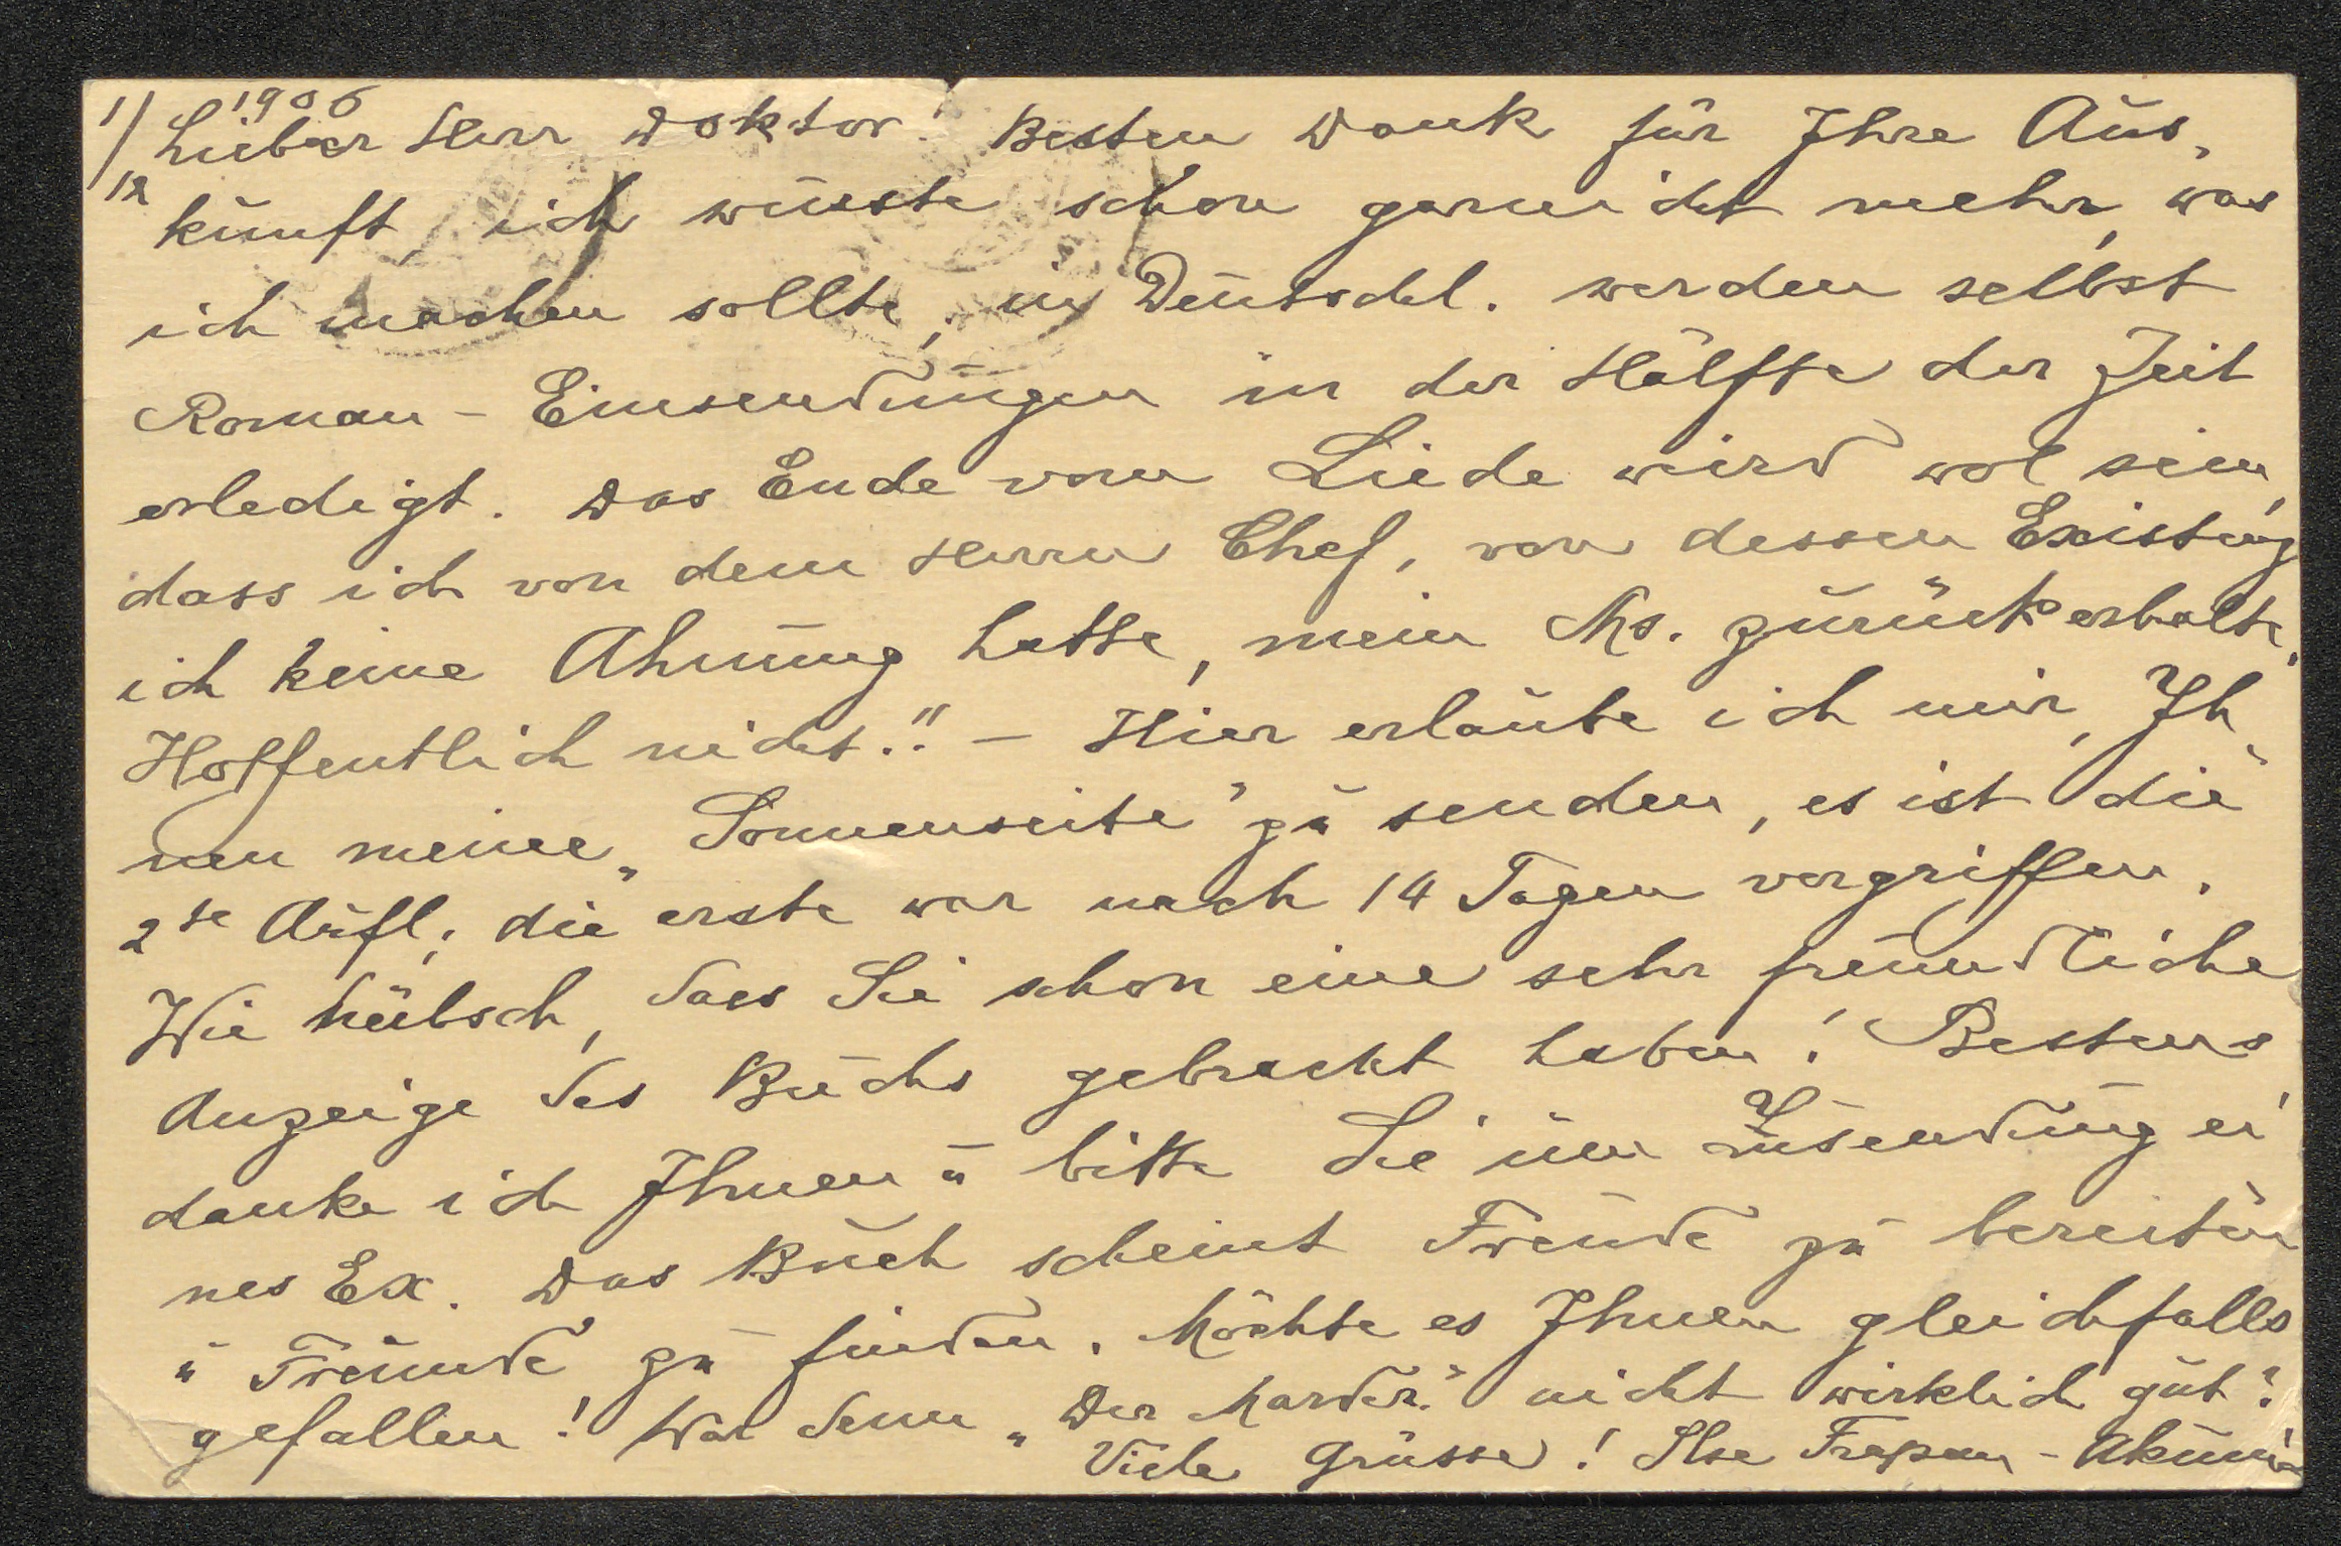 1/12 1906
Lieber Herr Doktor! Besten Dank für Ihre Aus-
kunft, ich wusste schon garnicht mehr, was
ich machen sollte; in Deutschl. werden selbst
Roman-Einsendungen in der Hälfte der Zeit
erledigt. Das Ende vom Liede wird wol sein,
dass ich von dem Herrn Chef, von dessen
ich keine Ahnung hatte, mein Ms. zurückerhalte.
Hoffentlich nicht!! – Hier erlaube ich mir, Ih-
nen meine „Sonnenseite" zu senden, es ist die
2te Aufl; die erste war nach 14 Tagen vergriffen.
Wie hübsch, dass Sie schon eine sehr freundliche
Anzeige des Buchs gebracht haben! Bestens
danke ich Ihnen u bitte Sie um Zusendung ei-
nes Ex. Das Buch scheint Freude zu bereiten
u Freunde zu finden. Möchte es Ihnen gleichfalls
gefallen! War denn „Der Marder" nicht wirklich gut?
Viele Grüsse! Ilse Frapan-Akunian